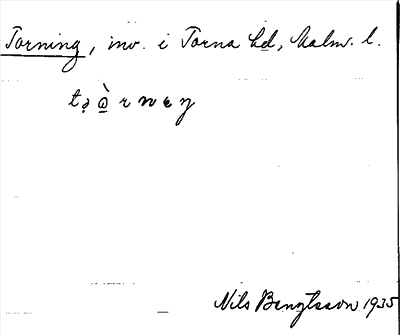 Torning, inv. i Torna hd, Malm. l.
tə̣ò̱rnɩŋ
Nils Bengtsson 1935